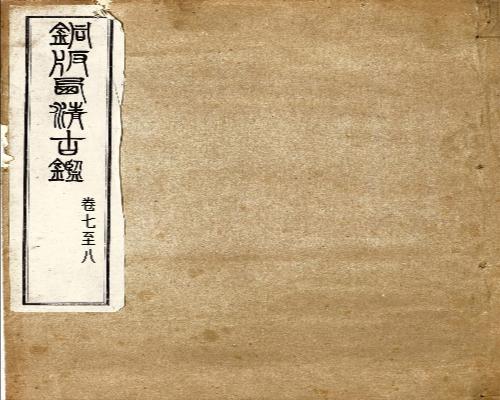 銅版西清古鑑
卷七至八